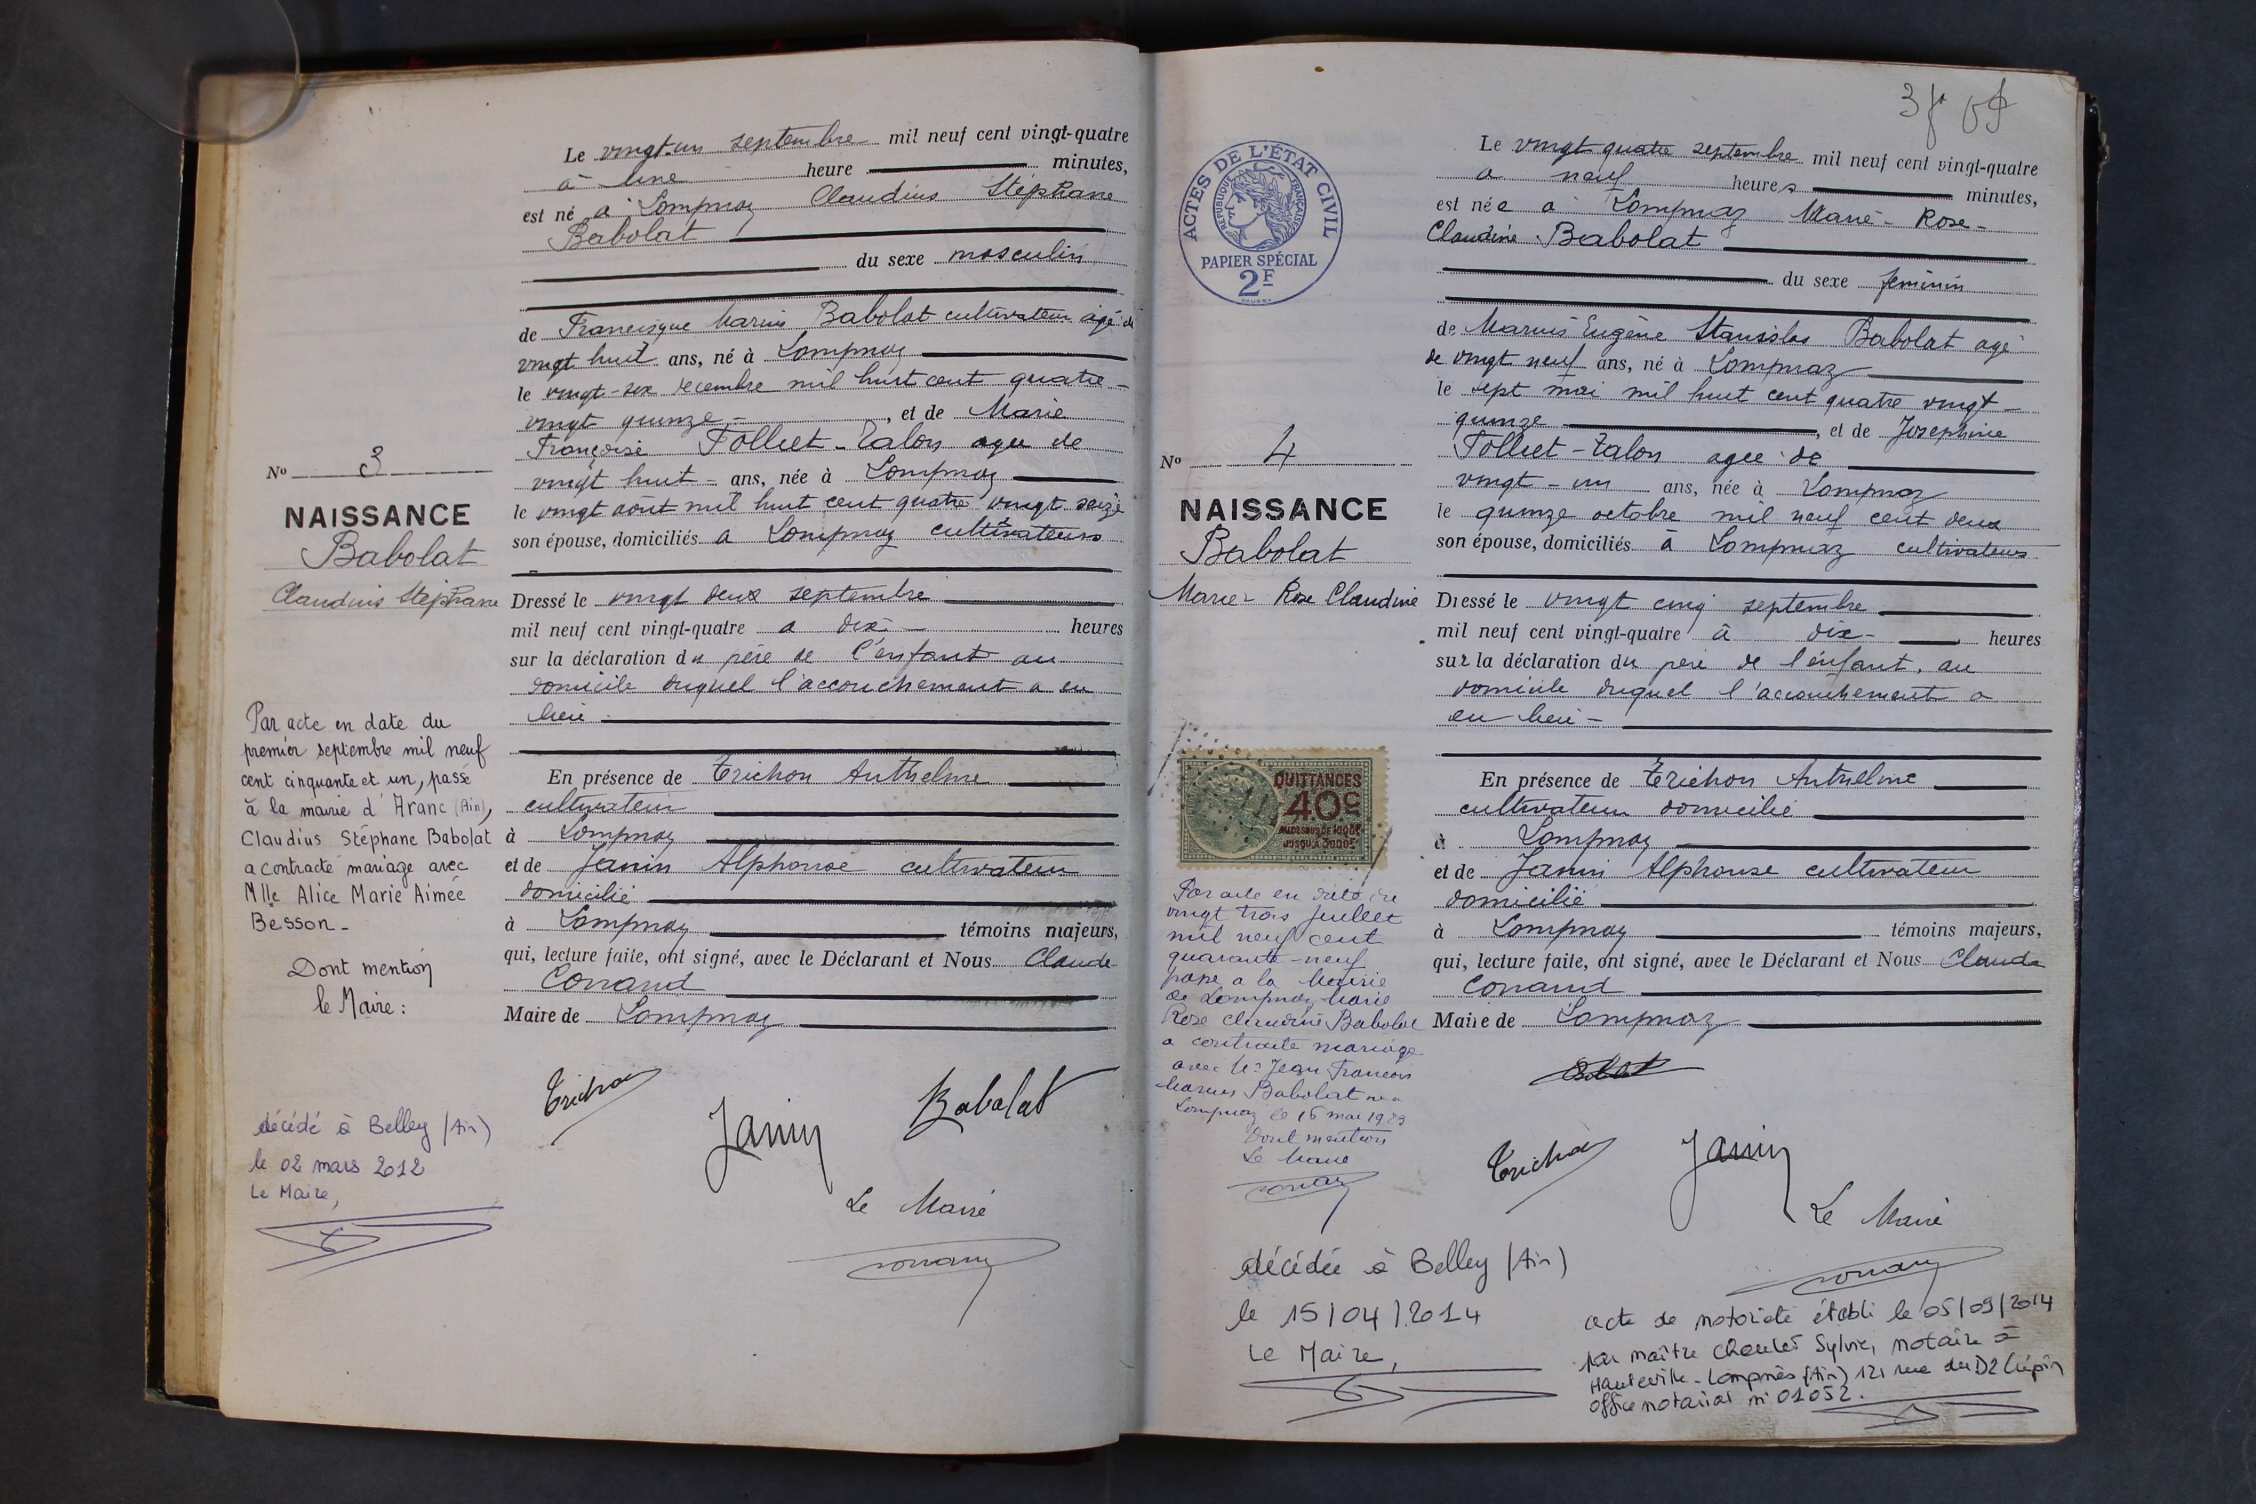 Le vingt-un septembre mil neuf cent vingt-quatre
à une heure minutes,
est né à Lompnaz Claudius Stéphane
Babolat
du sexe masculin
de Francisque Marius Babolat cultivateur agé de
vingt huit ans, né à Lompnaz
le vingt-six decembre mil huit cent quatre-
vingt quinze - , et de Marie
Françoise Folliet-Talon agee de
vingt huit - ans, née à Lompnaz
le vingt août mil huit cent quatre vingt seize
son épouse, domiciliés à Lompnaz cultivateurs
No 3
NAISSANCE
Babolat
Claudius Stéphane
Dressé le vingt deux septembre
mil neuf cent vingt-quatre a dix - heures
sur la déclaration du père de l'enfant au
domicile duquel l'accouchement a eu
lieu.
En présence de Trichon Anthelme
cultivateur
à Lompnaz
et de Janin Alphonse cultivateur
domicilié
à Lompnaz témoins majeurs,
qui, lecture faite, ont signé, avec le Déclarant et Nous Claude
Conand
Maire de Lompnaz
Par acte en date du
premier septembre mil neuf
cent cinquante et un, passé
à la mairie d'Aranc (Ain),
Claudius Stéphane Babolat
a contracté mariage avec
Mlle Alice Marie Aimée
Besson -
Dont mention
le Maire :
Trichon
Janin
Babolat
Le Maire
Conand
décédé à Belley (Ain)
le 02 mars 2012
Le Maire,
ACTES DE L'ÉTAT CIVIL
RÉPUBLIQUE FRANÇAISE
PAPIER SPÉCIAL
2F
Le vingt quatre septembre mil neuf cent vingt-quatre
a neuf heures minutes,
est née a Lompnaz Marie-Rose-
Claudine Babolat
du sexe feminin
de Marius Eugène Stanislas Babolat agé
de vingt neuf ans, né à Lompnaz
le sept mai mil huit cent quatre vingt-
quinze , et de Josephine
Folliet-Talon agee de
vingt-un ans, née à Lompnaz
le quinze octobre mil neuf cent deux
son épouse, domiciliés à Lompnaz cultivateurs
No 4
NAISSANCE
Babolat
Marie-Rose Claudine
Dressé le vingt cinq septembre
mil neuf cent vingt-quatre à dix - heures
sur la déclaration du père de l'enfant, au
domicile duquel l'accouchement a
eu lieu -
En présence de Trichon Anthelme
cultivateur domicilié
à Lompnaz
et de Janin Alphonse cultivateur
domicilié
à Lompnaz témoins majeurs,
qui, lecture faite, ont signé, avec le Déclarant et Nous Claude
Conand
Maire de Lompnaz
QUITTANCES
40c
AU DESSUS DE 1000F
JUSQU'A 3000F
Par acte en date du
vingt trois Juillet
mil neuf cent
quarante-neuf
passé a la Mairie
de Lompnaz Marie
Rose Claudine Babolat
a contracté mariage
avec Mr Jean François
Marius Babolat né a
Lompnaz le 16 mai 1923
Dont mention
Le Maire
Conand
Trichon
Janin
Le Maire
Conand
décédée à Belley (Ain)
le 15/04/2014
Le Maire,
acte de notoriété établi le 05/09/2014
par maître Sylvie, notaire à
Hauteville-Lompnès (Ain) 121 rue du D2 Lépin
office notarial n° 01052.